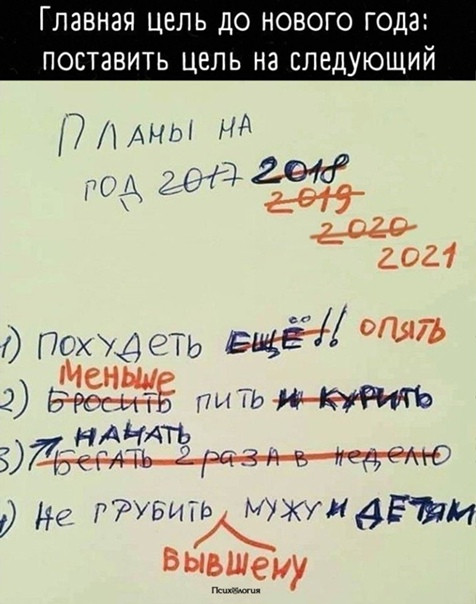 Главная цель до нового года:
поставить цель на следующий
ПЛАНЫ НА
ГОД 2017 2018
2019
2020
2021
1) ПОХУДЕТЬ ЕЩЁ!! ОПЯТЬ
МЕНЬШЕ
2) БРОСИТЬ ПИТЬ И КУРИТЬ
НАЧАТЬ
3) БЕГАТЬ 2 РАЗА В НЕДЕЛЮ
) НЕ ГРУБИТЬ МУЖУ И ДЕТЯМ
БЫВШЕМУ
Психология